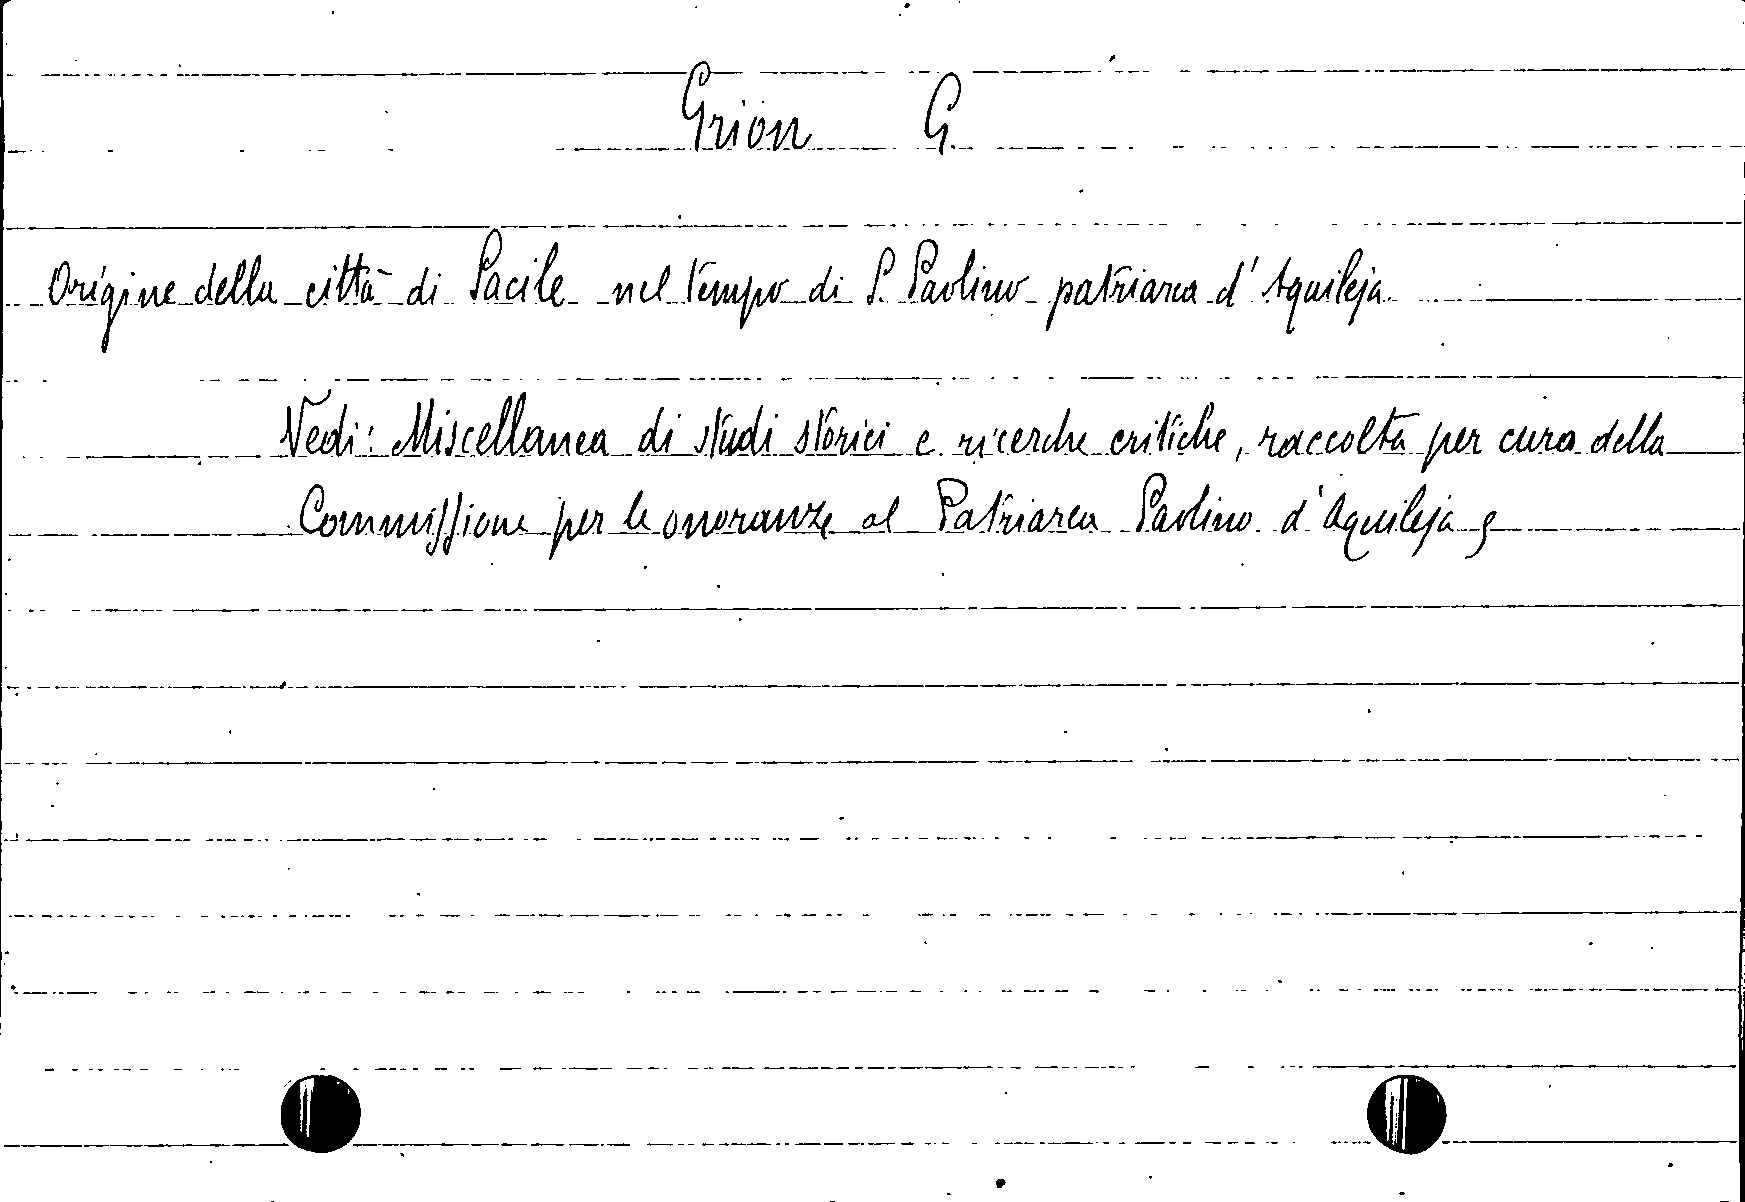 Grion G.
Origine della città di Sacile nel tempo di S. Paolino patriarca d'Aquileja.
Vedi: Miscellanea di studi storici e ricerche critiche, raccolta per cura della
Commissione per le onoranze al Patriarca Paolino d'Aquileja